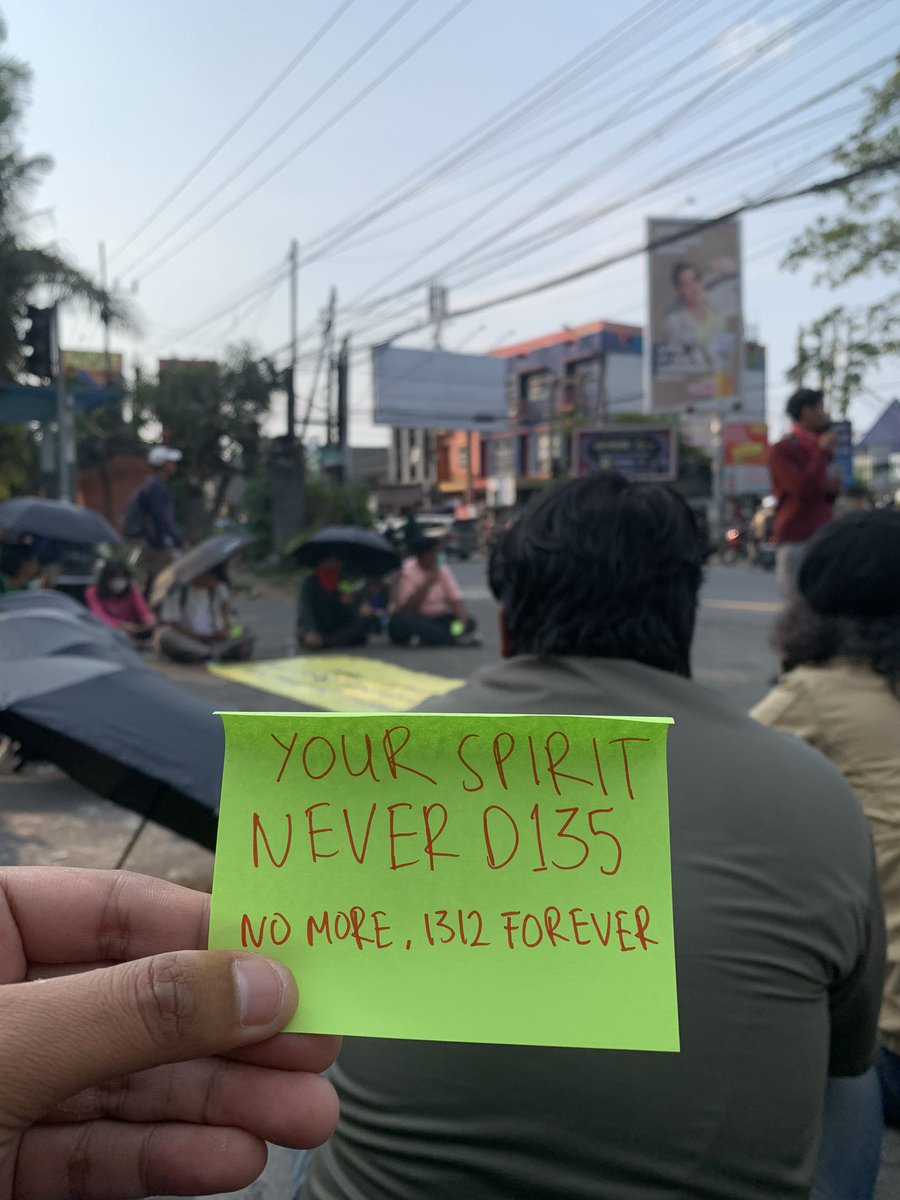 YOUR SPIRIT
NEVER D135
NO MORE, 1312 FOREVER